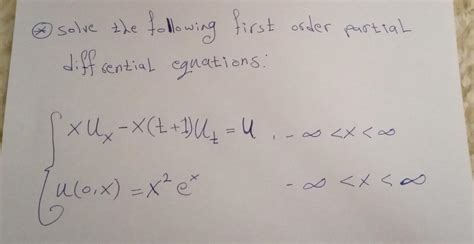 ⊛ solve the following first order partial
differential equations:
x u_x - x(t+1) u_t = u , -∞ < x < ∞
u(0,x) = x² eˣ -∞ < x < ∞